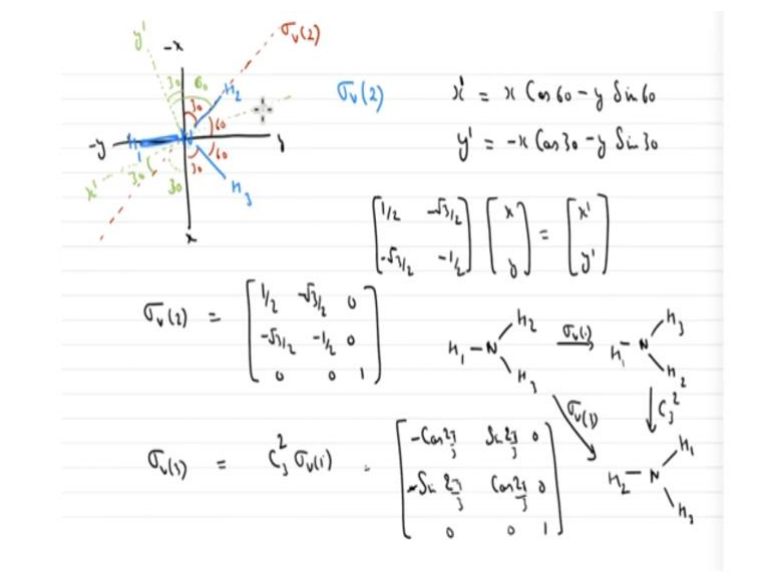 y'
-x
σv(2)
30
60
H2
30
60
-y
H1
N
y
x'
30
30
30
60
H3
x
σv(2)
x' = x Cos60 - y Sin60
y' = -x Cos30 - y Sin30
[1/2 -√3/2] [x] = [x']
[-√3/2 -1/2] [y] [y']
σv(2) = [1/2 -√3/2 0]
[-√3/2 -1/2 0]
[0 0 1]
H1-N H2 H3
σv(1)
H1-N H3 H2
C3²
σv(3) = C3² σv(1) =
[-Cos2π/3 Sin2π/3 0]
[-Sin2π/3 Cos2π/3 0]
[0 0 1]
H2-N H1 H3